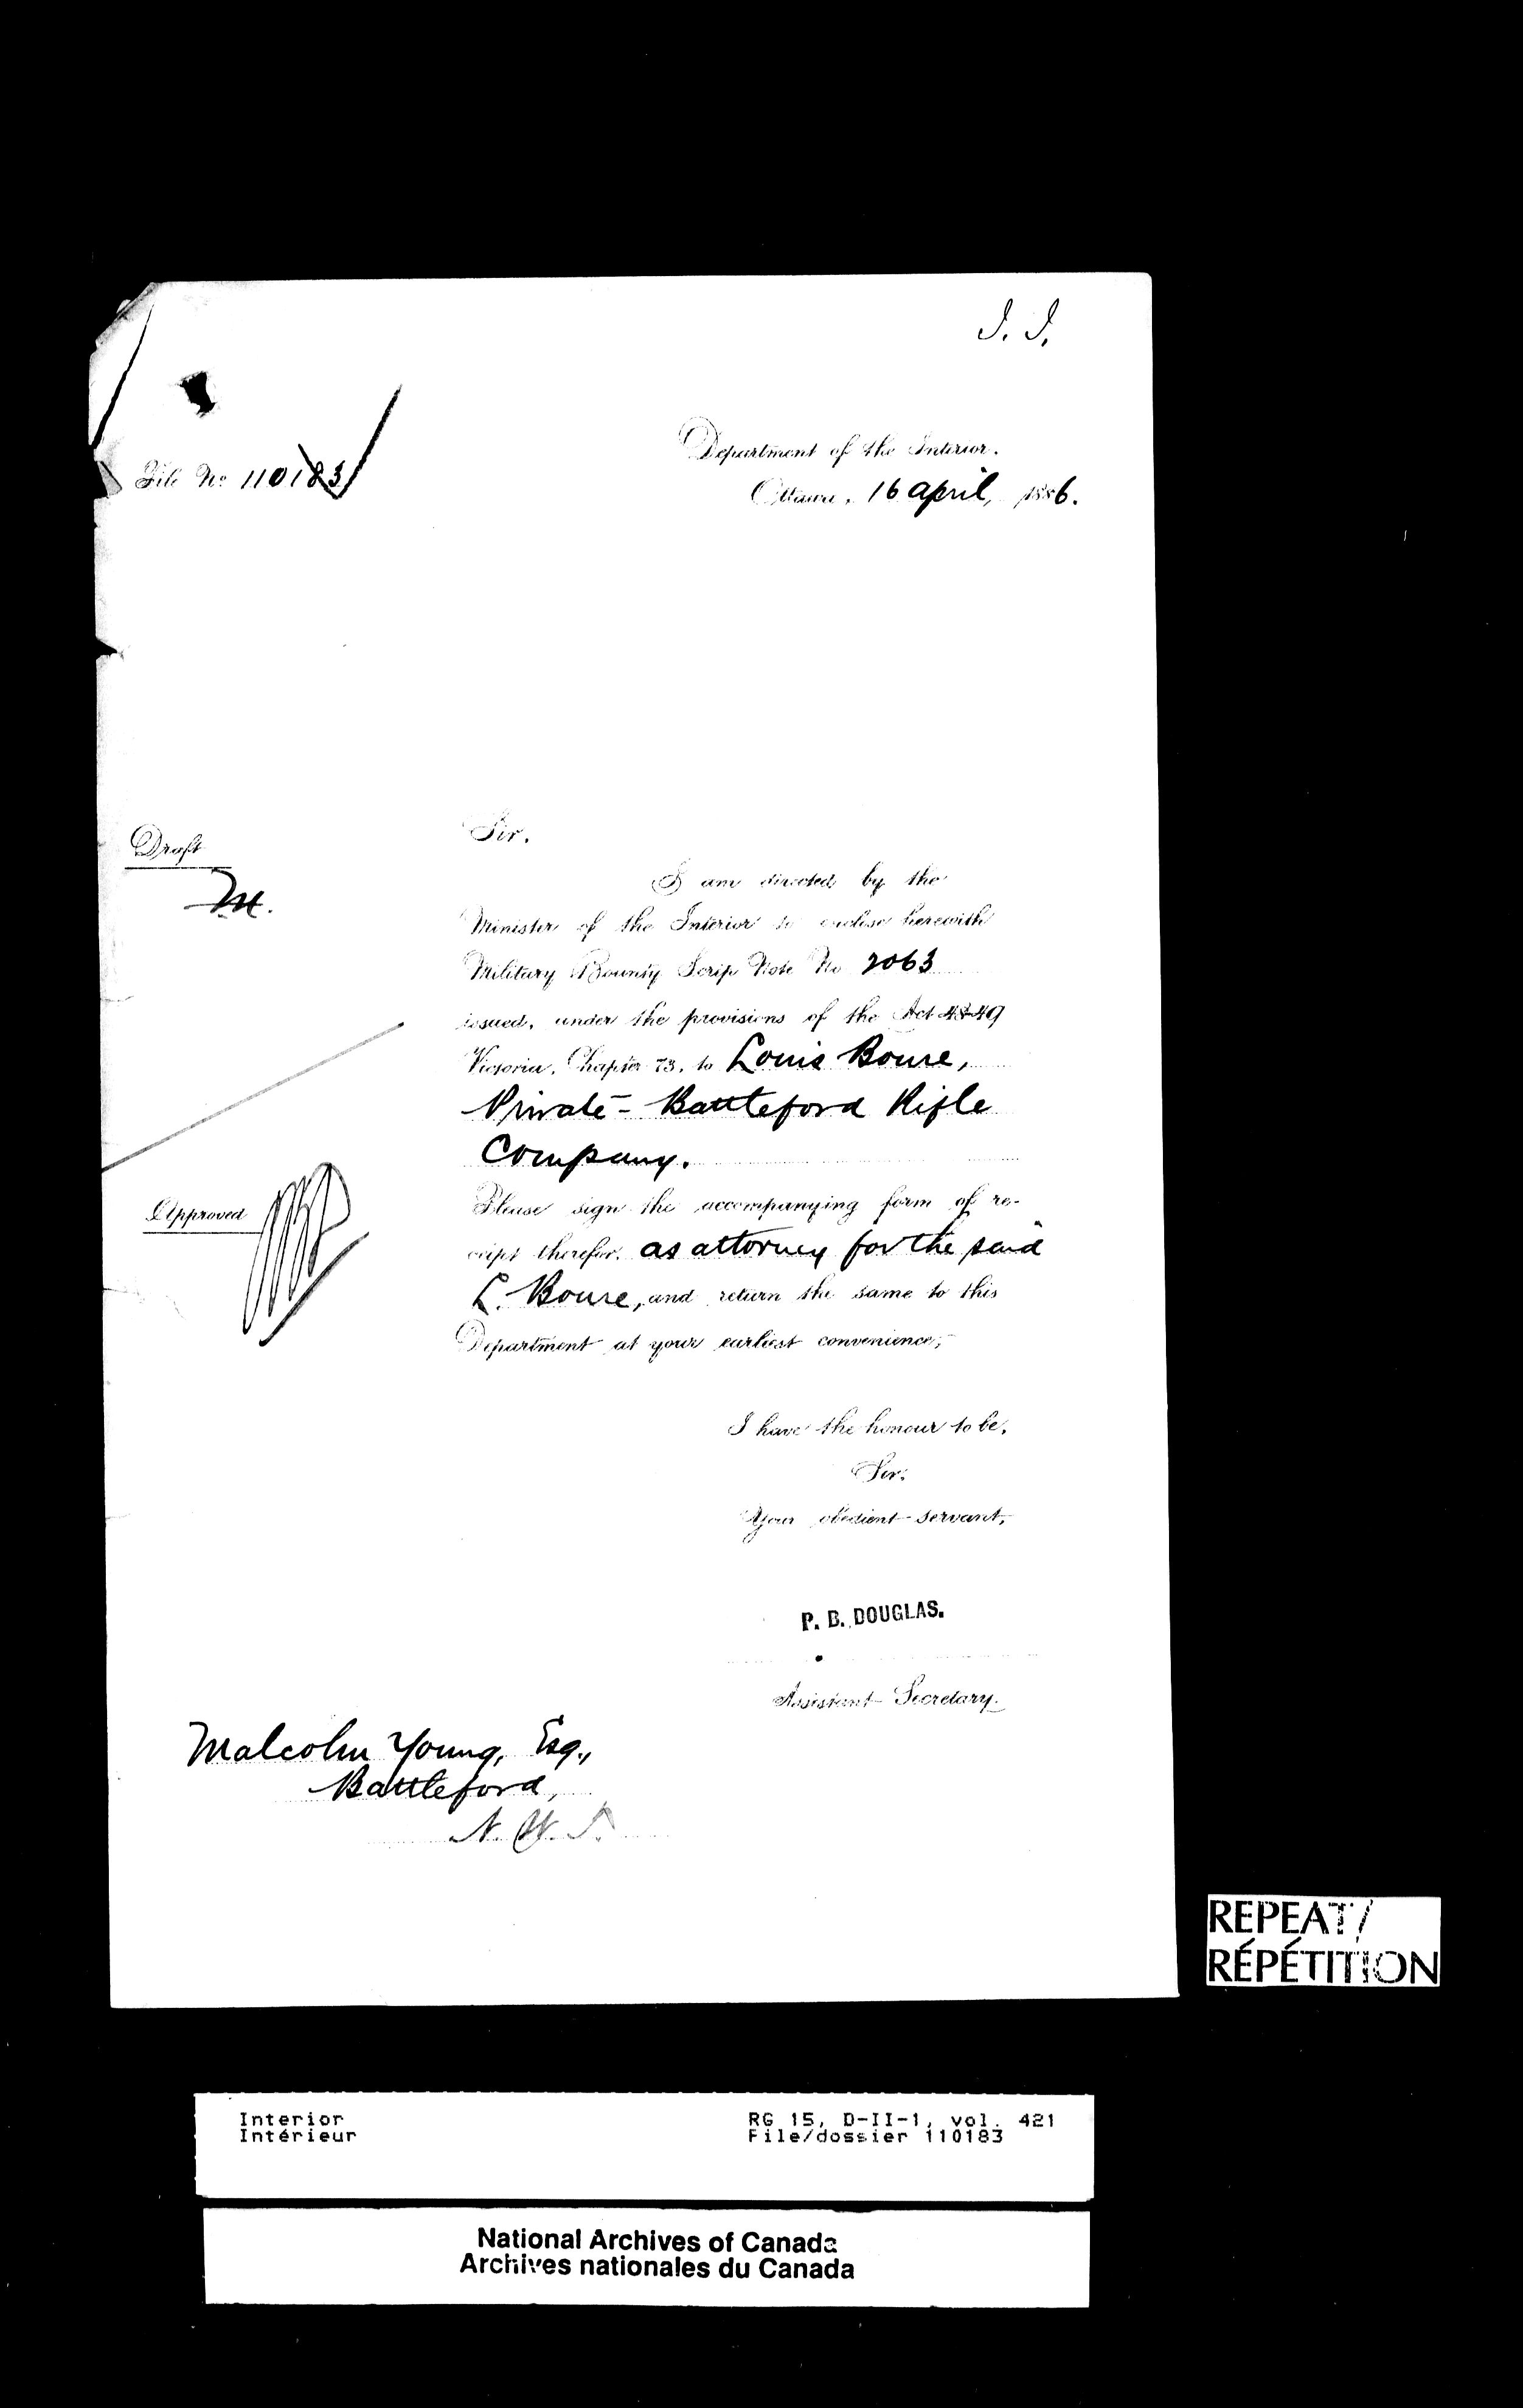 J. J.
File No 110183
Department of the Interior.
Ottawa, 16 April, 1886.
Draft
M.
Sir,
I am directed by the
Minister of the Interior to enclose herewith
Military Bounty Scrip Note No 2063
issued, under the provisions of the Act 48-49
Victoria, Chapter 73, to Louis Boure,
Private - Battleford Rifle
Company.
Approved
Please sign the accompanying form of re-
ceipt therefor, as attorney for the said
L. Boure, and return the same to this
Department at your earliest convenience,
I have the honour to be,
Sir,
Your obedient servant,
P. B. DOUGLAS.
Assistant Secretary.
Malcolm Young, Esq.,
Battleford,
N. W. T.
REPEAT/
RÉPÉTITION
Interior
Intérieur
RG 15, D-II-1, vol. 421
File/dossier 110183
National Archives of Canada
Archives nationales du Canada